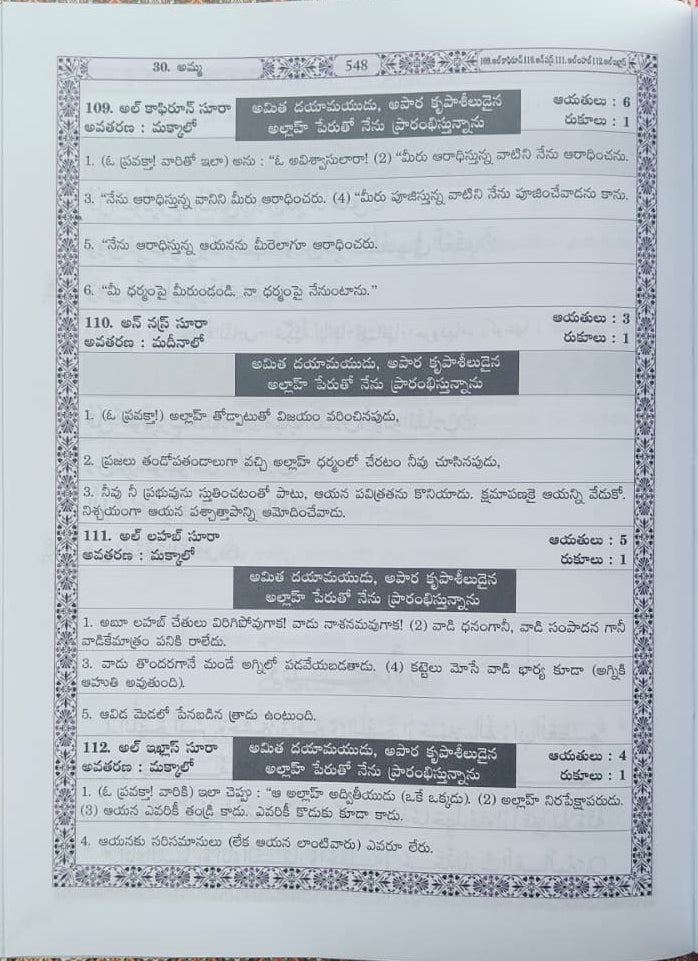 30. అమ్మ
548
109. అల్ కాఫిరూన్ 110. అన్ నస్ర్ 111. అల్ లహబ్ 112. అల్ ఇఖ్లాస్
109. అల్ కాఫిరూన్ సూరా
అవతరణ : మక్కాలో
అమిత దయామయుడు, అపార కృపాశీలుడైన
అల్లాహ్ పేరుతో నేను ప్రారంభిస్తున్నాను
ఆయతులు : 6
రుకూలు : 1
1. (ఓ ప్రవక్తా! వారితో ఇలా) అను : “ఓ అవిశ్వాసులారా! (2) “మీరు ఆరాధిస్తున్న వాటిని నేను ఆరాధించను.
3. “నేను ఆరాధిస్తున్న వానిని మీరు ఆరాధించరు. (4) “మీరు పూజిస్తున్న వాటిని నేను పూజించేవాదను కాను.
5. “నేను ఆరాధిస్తున్న ఆయనను మీరెలాగూ ఆరాధించరు.
6. “మీ ధర్మంపై మీరుండండి. నా ధర్మంపై నేనుంటాను.”
110. అన్ నస్ర్ సూరా
అవతరణ : మదీనాలో
ఆయతులు : 3
రుకూలు : 1
అమిత దయామయుడు, అపార కృపాశీలుడైన
అల్లాహ్ పేరుతో నేను ప్రారంభిస్తున్నాను
1. (ఓ ప్రవక్తా!) అల్లాహ్ తోడ్పాటుతో విజయం వరించినపుడు,
2. ప్రజలు తండోపతండాలుగా వచ్చి అల్లాహ్ ధర్మంలో చేరటం నీవు చూసినపుడు,
3. నీవు నీ ప్రభువును స్తుతించటంతో పాటు, ఆయన పవిత్రతను కొనియాడు. క్షమాపణకై ఆయన్ని వేడుకో.
నిశ్చయంగా ఆయన పశ్చాత్తాపాన్ని ఆమోదించేవాడు.
111. అల్ లహబ్ సూరా
అవతరణ : మక్కాలో
ఆయతులు : 5
రుకూలు : 1
అమిత దయామయుడు, అపార కృపాశీలుడైన
అల్లాహ్ పేరుతో నేను ప్రారంభిస్తున్నాను
1. అబూ లహబ్ చేతులు విరిగిపోవుగాక! వాడు నాశనమవుగాక! (2) వాడి ధనంగానీ, వాడి సంపాదన గానీ
వాడికేమాత్రం పనికి రాలేదు.
3. వాడు తొందరగానే మండే అగ్నిలో పడవేయబడతాడు. (4) కట్టెలు మోసే వాడి భార్య కూడా (అగ్నికి
ఆహుతి అవుతుంది).
5. ఆవిడ మెడలో పేనబడిన త్రాడు ఉంటుంది.
112. అల్ ఇఖ్లాస్ సూరా
అవతరణ : మక్కాలో
అమిత దయామయుడు, అపార కృపాశీలుడైన
అల్లాహ్ పేరుతో నేను ప్రారంభిస్తున్నాను
ఆయతులు : 4
రుకూలు : 1
1. (ఓ ప్రవక్తా! వారికి) ఇలా చెప్పు : “ఆ అల్లాహ్ అద్వితీయుడు (ఒకే ఒక్కడు). (2) అల్లాహ్ నిరపేక్షాపరుడు.
(3) ఆయన ఎవరికీ తండ్రి కాడు. ఎవరికీ కొడుకు కూడా కాడు.
4. ఆయనకు సరిసమానులు (లేక ఆయన లాంటివారు) ఎవరూ లేరు.